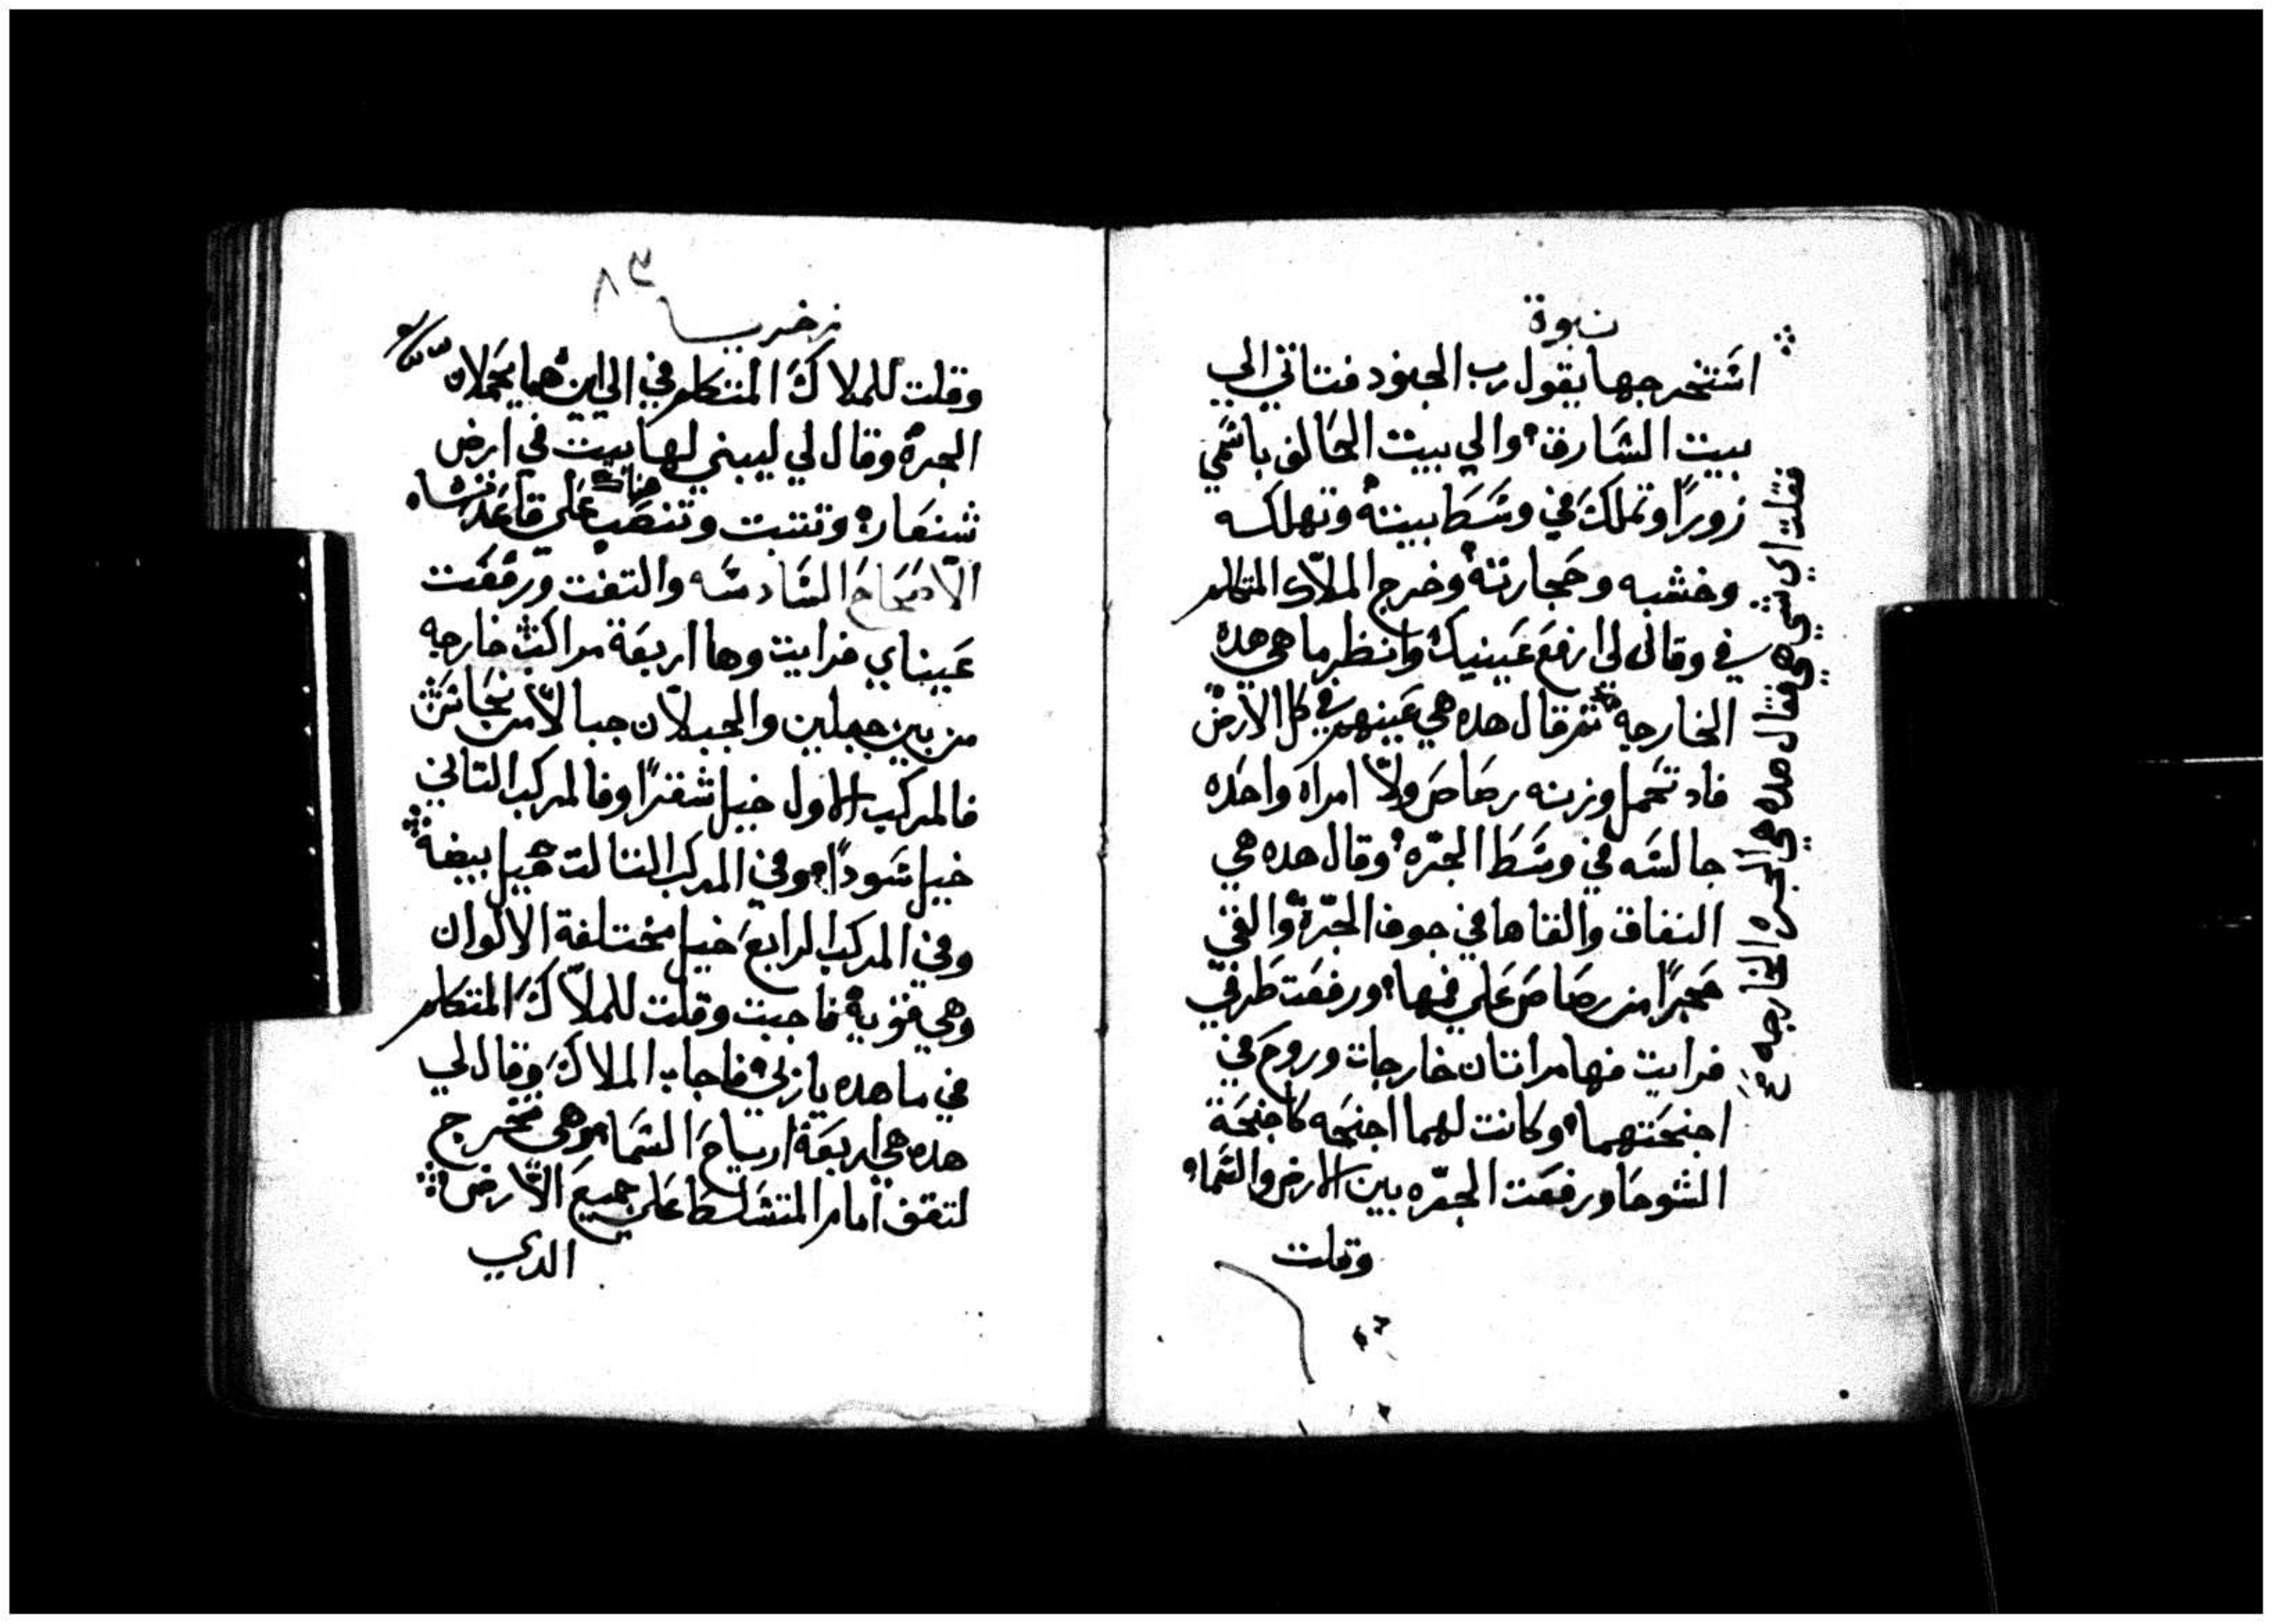 نبوة
اشتخرجها يقول رب الجنود فتاتي الي
بيت الشارق والي بيت الحالف باشمي
زورًا وتملك في وشط بيته وتهلكه
وخشبه وحجارته وخرج الملاك المتكلم
في وقال لي ارفع عينيك وانظر ما هي هده
الخارجه ثم قال هده هي عينهم في كل الارض
فاد تحمل وزنه رصاص ولا امراه واحده
جالشه في وشط الجره وقال هده هي
النفاق والقاها في جوف الجره والقي
حجرًا من رصاص علي فيها ورفعت طرفي
فرايت فها مراتان خارجات وروح في
اجنحتهما وكانت لهما اجنحه كاجنحة
الشوحا ورفعت الجره بين الارض والشماء
وقلت
فقلت اي شي هي فقال هده هي الجره الخارجه
زخريا
٨٣
وقلت للملاك المتكلم في الي اين هما يحملان
الجره وقال لي ليبني لها بيت في ارض
شنعار وتتبت وتنصب هناك علي قاعدتها
الاصحاح الشادشه والتفت ورفعت
عيناي فرايت وها اربعة مراكب خارجه
من بين جبلين والجبلان جبالا من نحاش
فالمركب الاول خيل شقرًا وفالمركب التاني
خيل شودًا وفي المركب التالت خيل بيضه
وفي المركب الرابع خيل مختلفة الالوان
وهي قويه فاجبت وقلت للملاك المتكلم
في ما هده يا ربي فاجاب الملاك وقال لي
هده هي اربعة ارياح الشما وهي تخرج
لتقف امام المتشلط علي جميع الارض
الدي